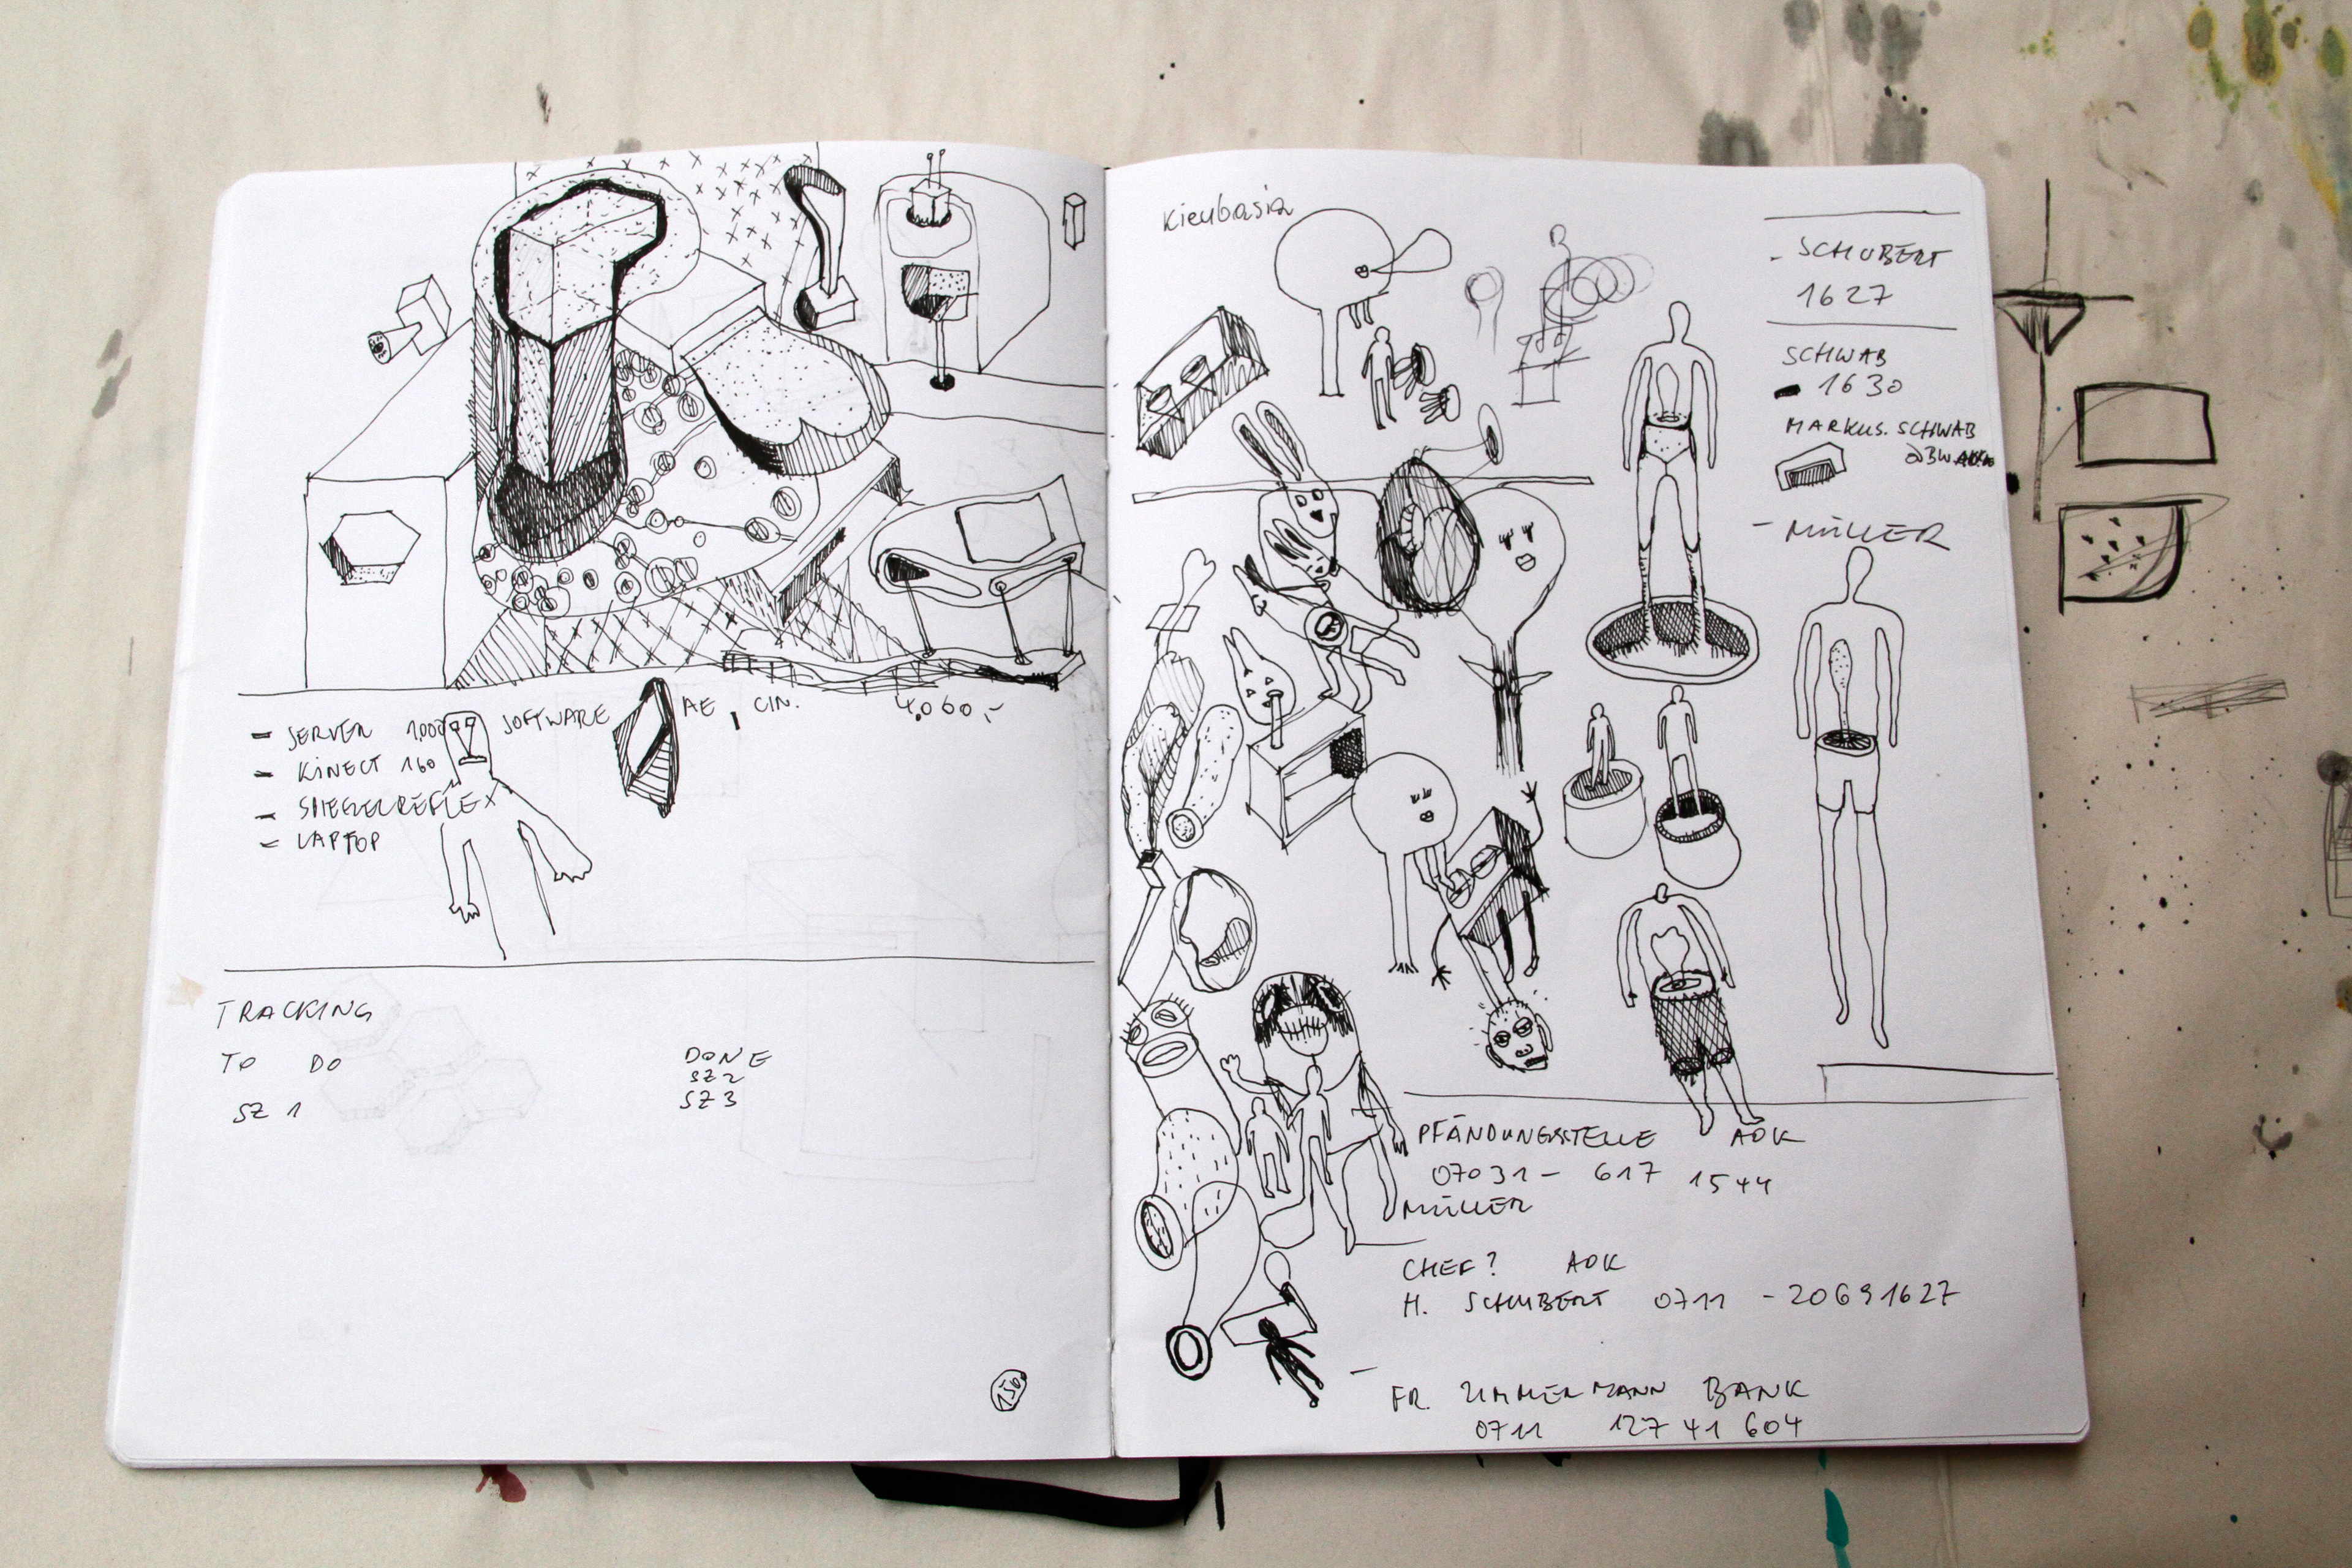 - SERVER 1000 SOFTWARE AE, CIN. 4.060,-
- KINECT 160
- SPIEGELREFLEX
- LAPTOP
TRACKING
TO DO
SZ 1
DONE
SZ 2
SZ 3
150
Kieubasia
- SCHUBERT
1627
SCHWAB
- 1630
MARKUS. SCHWAB
- MÜLLER
PFÄNDUNGSSTELLE AOK
07031 - 617 1544
MÜLLER
CHEF? AOK
H. SCHUBERT 0711 - 20691627
FR. ZIMMERMANN BANK
0711 127 41 604